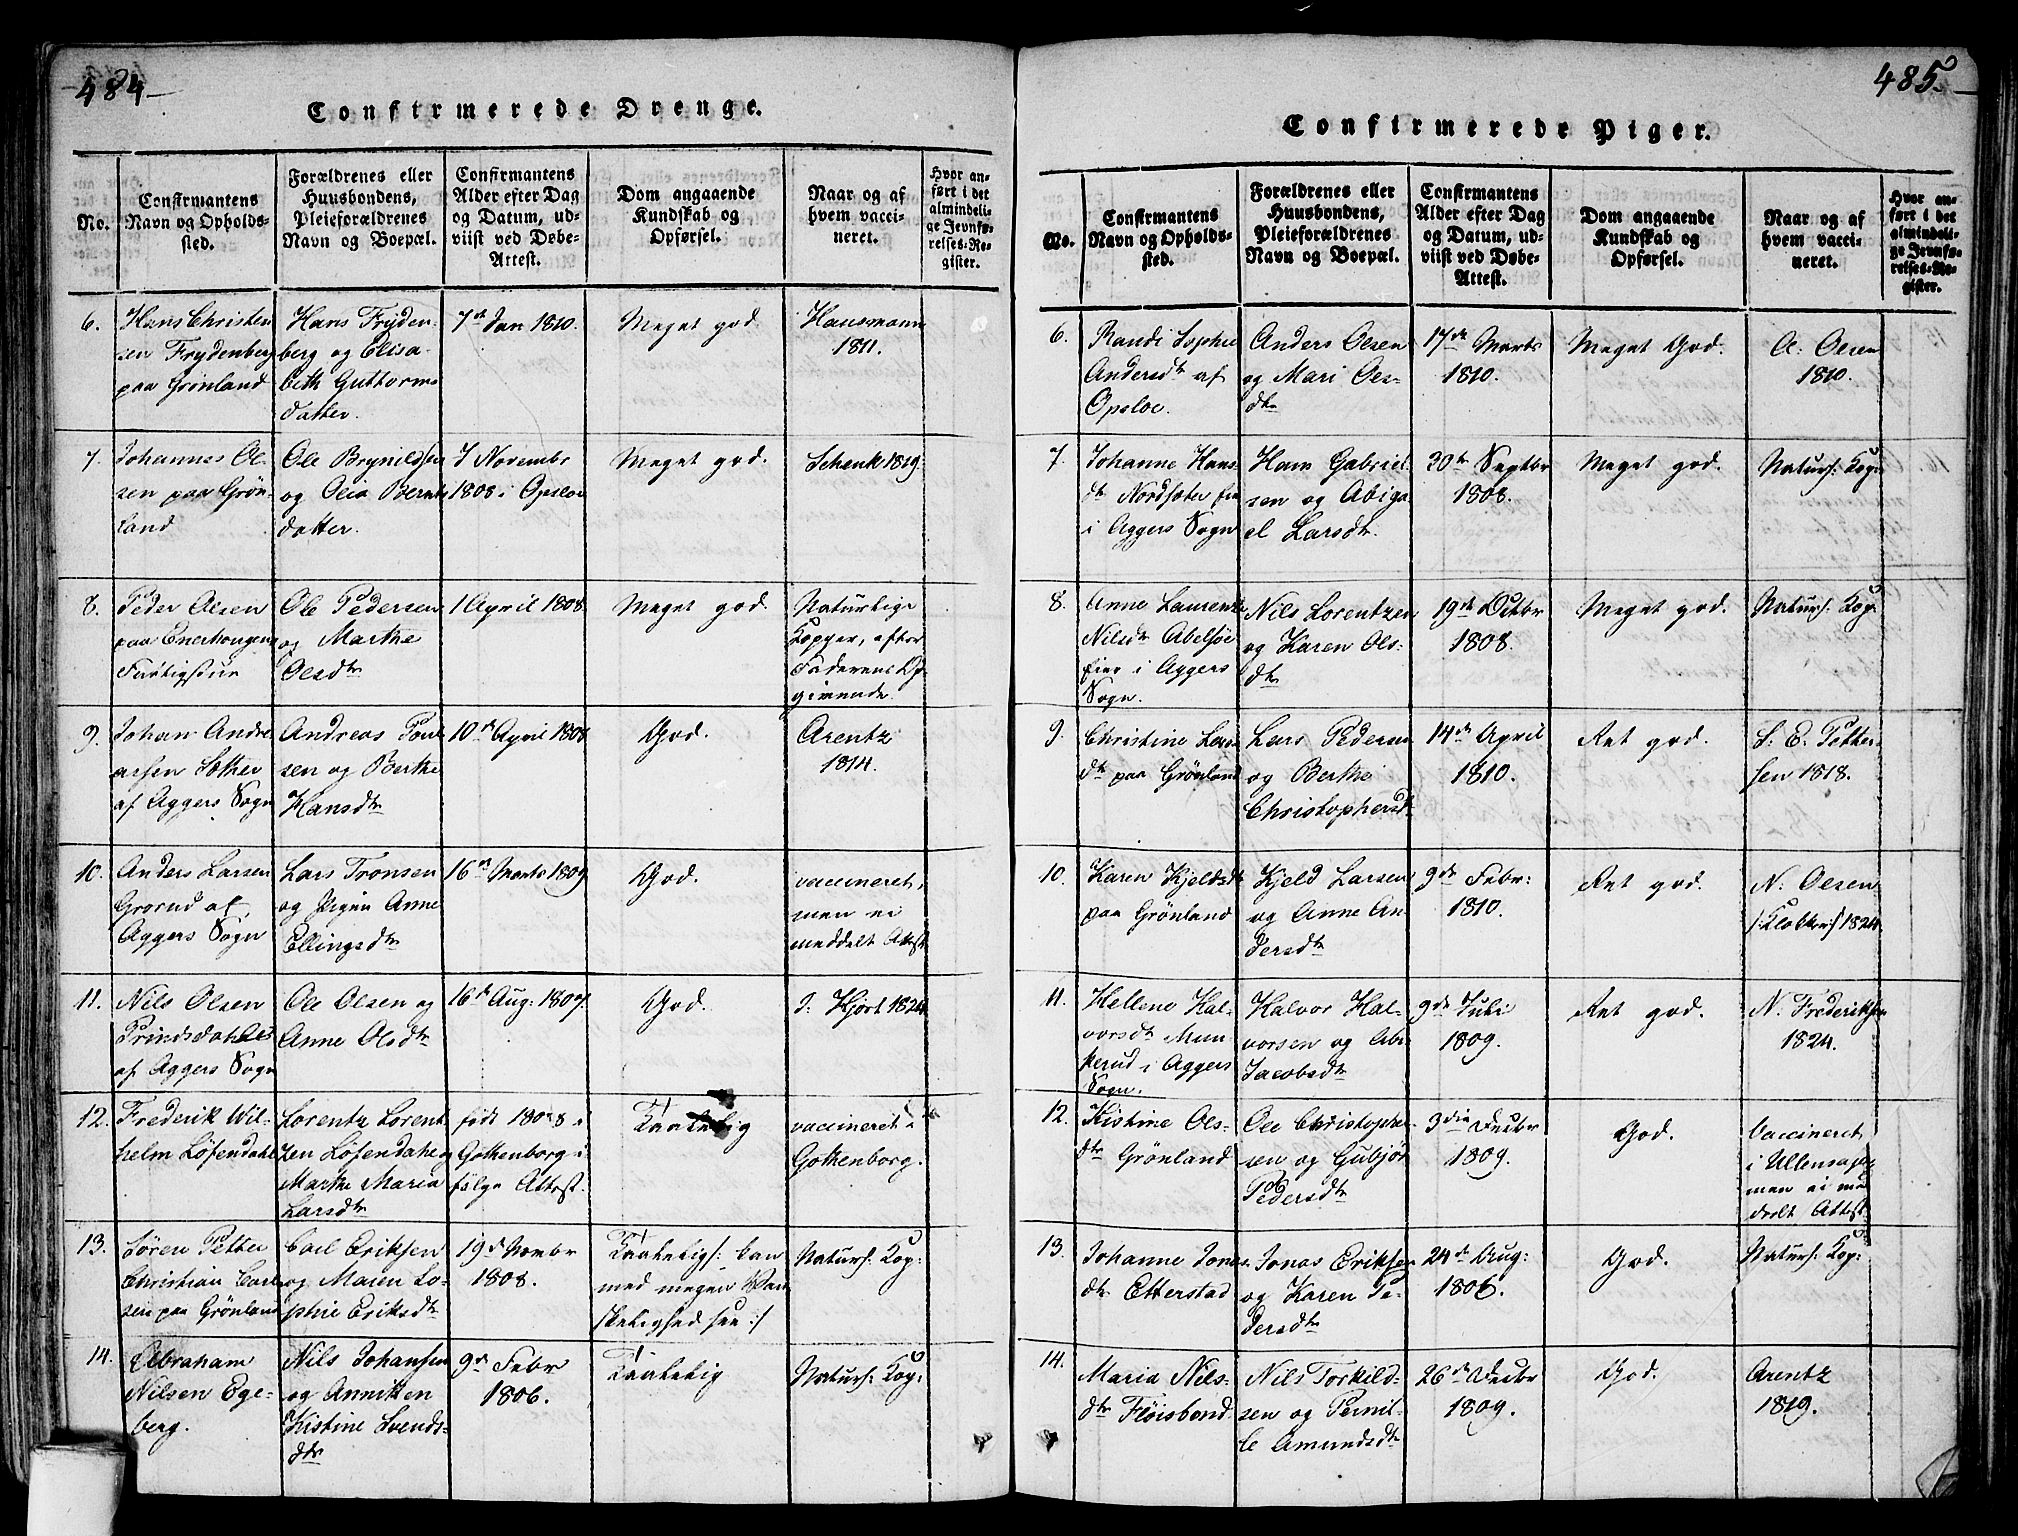 484
Confirmerede Drenge.
No.
Confirmantens
Navn og Opholds-
sted.
Forældrenes eller
Huusbondens,
Pleieforældrenes
Navn og Boepæl.
Confirmantens
Alder efter Dag
og Datum, ud-
viist ved Døbe-
Attest.
Dom angaaende
Kundskab og
Opførsel.
Naar og af
hvem vacci-
neret.
Hvor an-
ført i det
almindeli-
ge Jevnfø-
relses-Re-
gister.
6.
Hans Christen
sen Frydenberg
paa Grönland
Hans Fryden-
berg og Elisa-
beth Guttorms
datter.
7de Jan 1810.
Meget god.
Hausmann
1811.
7.
Johannes Ol
sen paa Grön-
land
Ole Brynildsen
og Olia Bernts
datter.
7 Novembr
1808 i Opsloe
Meget god.
Schenk 1819.
8.
Peder Olsen
paa Enerhougen
Ole Pedersen
og Marthe
Olsdtr
1 April 1808.
Meget god.
Naturlige
Kopper, efter
Faderens Op
givende.
9.
Johan Andre
asen Sother
af Aggers Sogn
Andreas Poul
sen og Berthe
Hansdtr
10de April 1808
God.
Arentz
1814.
10.
Anders Larsen
Grorud af
Aggers Sogn
Lars Tronsen
og Pigen Anne
Ellingsdtr
16de Marts 1809
God.
vaccineret,
men ei
meddelt Attest
11.
Nils Olsen
Prindsdahl
af Aggers Sogn
Ole Olsen og
Anne Olsdtr
16de Aug: 1807.
God.
J: Hjort 1824
12.
Frederik Wil-
helm Löfendahl
Lorentz Lorent
zen Löfendahl og
Marthe Maria
Larsdtr
födt 1808 i
Gothenborg i-
følge Attest.
Taalelig
vaccineret i
Gothenborg.
13.
Sören Petter
Christian Carl
sen paa Grönland
Carl Eriksen
og Maren So-
phie Eriksdtr
19d Novbr
1808.
Taalelig /: kan
med megen Van
skelighed see :/
Natürl: Kop:
14.
Abraham
Nilsen Ege-
berg.
Nils Johansen
og Annikken
Kistine Svends-
dtr
9de Febr
1806.
Taalelig
Natürl: Kop:
485.
Confirmerede Piger.
No.
Confirmantens
Navn og Opholds-
sted.
Forældrenes eller
Huusbondens,
Pleieforældrenes
Navn og Boepæl.
Confirmantens
Alder efter Dag
og Datum, ud-
viist ved Døbe-
Attest.
Dom angaaende
Kundskab og
Opførsel.
Naar og af
hvem vacci-
neret.
Hvor an-
ført i det
almindeli-
ge Jevnfø-
relses-Re-
gister.
6.
Randi Sophie
Andersdtr af
Opsloe.
Anders Olsen
og Mari Ols-
dtr
17de Marts
1810.
Meget God.
A: Olsen
1810.
7.
Johanne Hans-
dtr Nordsæter eie
i Aggers Sogn
Hans Gabriel
sen og Abiga
el Larsdtr.
30te Septbr
1808.
Meget god.
Natürl: Kop:
8.
Anne Laurentze
Nilsdtr Abelsöe
eier i Aggers
Sogn.
Nils Lorentzen
og Karen Ols-
dtr
19de Octbr
1808.
Meget god.
Natürl: Kop:
9.
Christine Lars
dtr paa Grönland
Lars Pedersen
og Berthe
Christophersdtr
14de April
1810.
Ret god.
S: E. Petter
sen 1818.
10.
Karen Kjeldsdtr
paa Grönland
Kjeld Larsen
og Anne An-
dersdtr
9de Febr:
1810.
Ret god.
N: Olsen
/: Klokker :/ 1824
11.
Hellene Hal-
vorsdtr Mun-
kerud i Aggers
Sogn.
Halvor Hal-
vorsen og Abi-
Jacobsdtr
9de Juli
1809.
Ret god.
N. Frederiksen
1824.
12.
Kistine Ols-
dtr Grönland
Ole Christopher-
sen og Gubjör
Pedersdtr
3die Decbr
1809.
God.
Vaccineret
i Ullensager
men ei med
deelt Attest
13.
Johanne Jonas
dtr Etterstad
Jonas Eriksen
og Karen Pe-
dersdtr
24de Aug:
1806.
God.
Natürl: Kop:
14.
Maria Nils-
dtr Flöisbond.
Nils Torkild-
sen og Pernil-
le Amundsdtr
26de Decbr
1809.
God.
Arentz
1819.